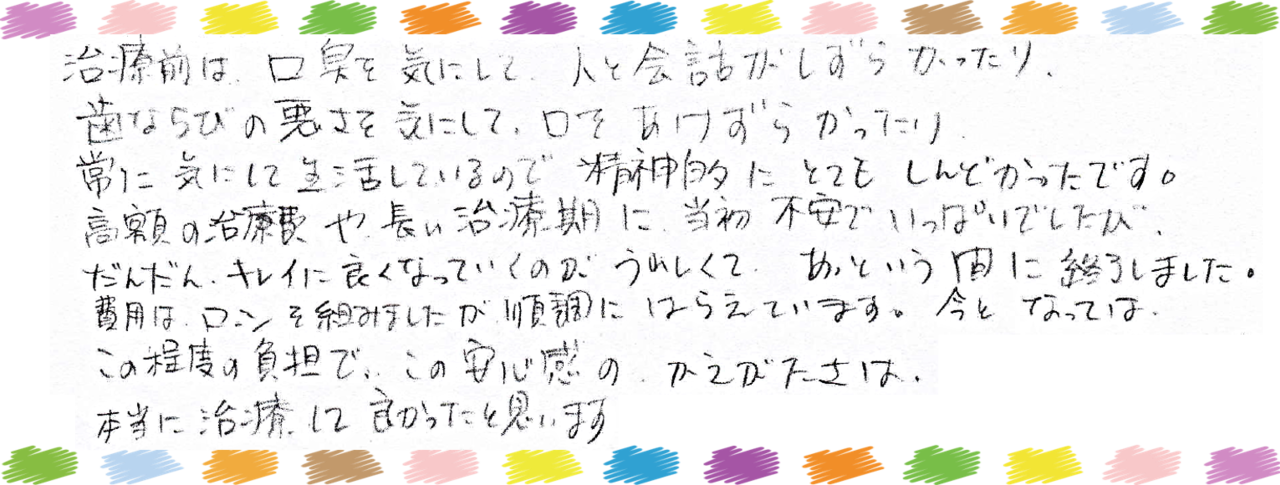 治療前は、口臭を気にして、人と会話がしずらかったり、
歯ならびの悪さを気にして、口をあけずらかったり、
常に気にして生活しているので精神的にとてもしんどかったです。
高額の治療費や、長い治療期に、当初不安でいっぱいでしたが、
だんだん、キレイに良くなっていくのが、うれしくて、あっという間に終了しました。
費用は、ローンを組みましたが順調にはらえています。今となっては、
この程度の負担で、この安心感の、かえがたさは、
本当に治療して良かったと思います